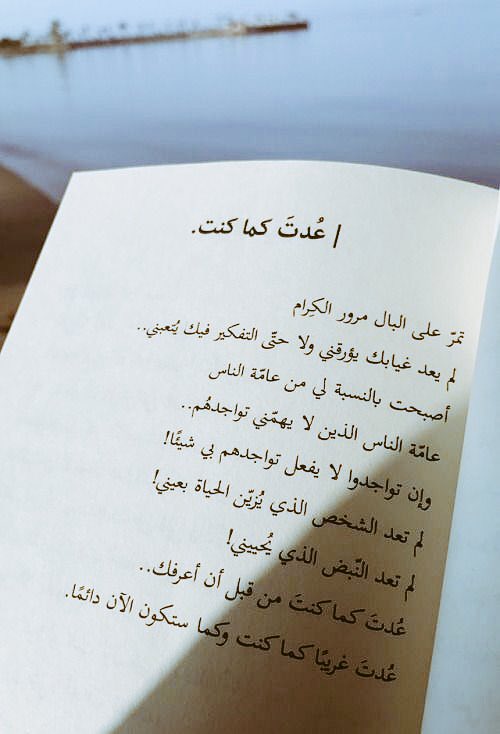 | عُدتَ كما كنت.
تمرّ على البال مرور الكِرام
لم يعد غيابك يؤرقني ولا حتّى التفكير فيك يُتعبني..
أصبحت بالنسبة لي من عامّة الناس
عامّة الناس الذين لا يهمّني تواجدهُم..
وإن تواجدوا لا يفعل تواجدهم بي شيئًا!
لم تعد الشخص الذي يُزيّن الحياة بعيني!
لم تعد النّبض الذي يُحييني!
عُدتَ كما كنتَ من قبل أن أعرفك..
عُدتَ غريبًا كما كنت وكما ستكون الآن دائمًا.